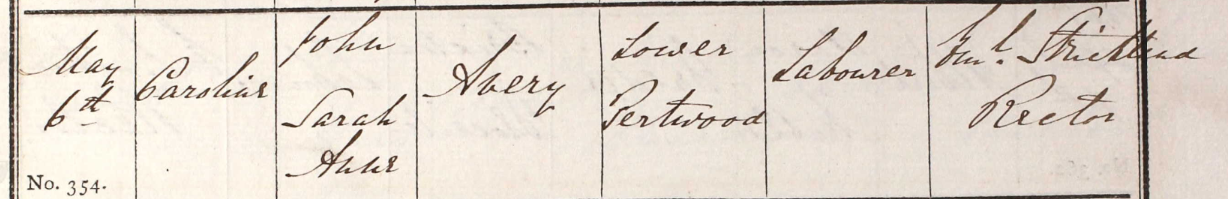 May
6th
No. 354.
Caroline
John
Sarah
Anne
Avery
Lower
Pertwood
Labourer
Strickland
Rector